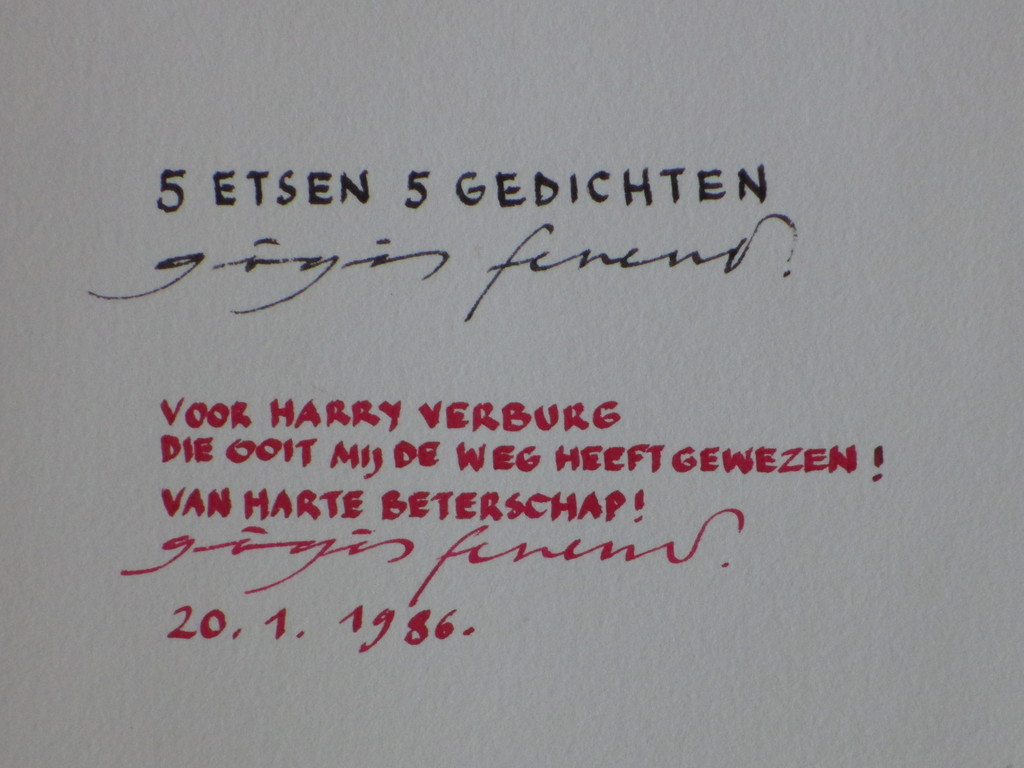 5 ETSEN 5 GEDICHTEN
VOOR HARRY VERBURG
DIE OOIT MIJ DE WEG HEEFT GEWEZEN!
VAN HARTE BETERSCHAP!
20.1.1986.